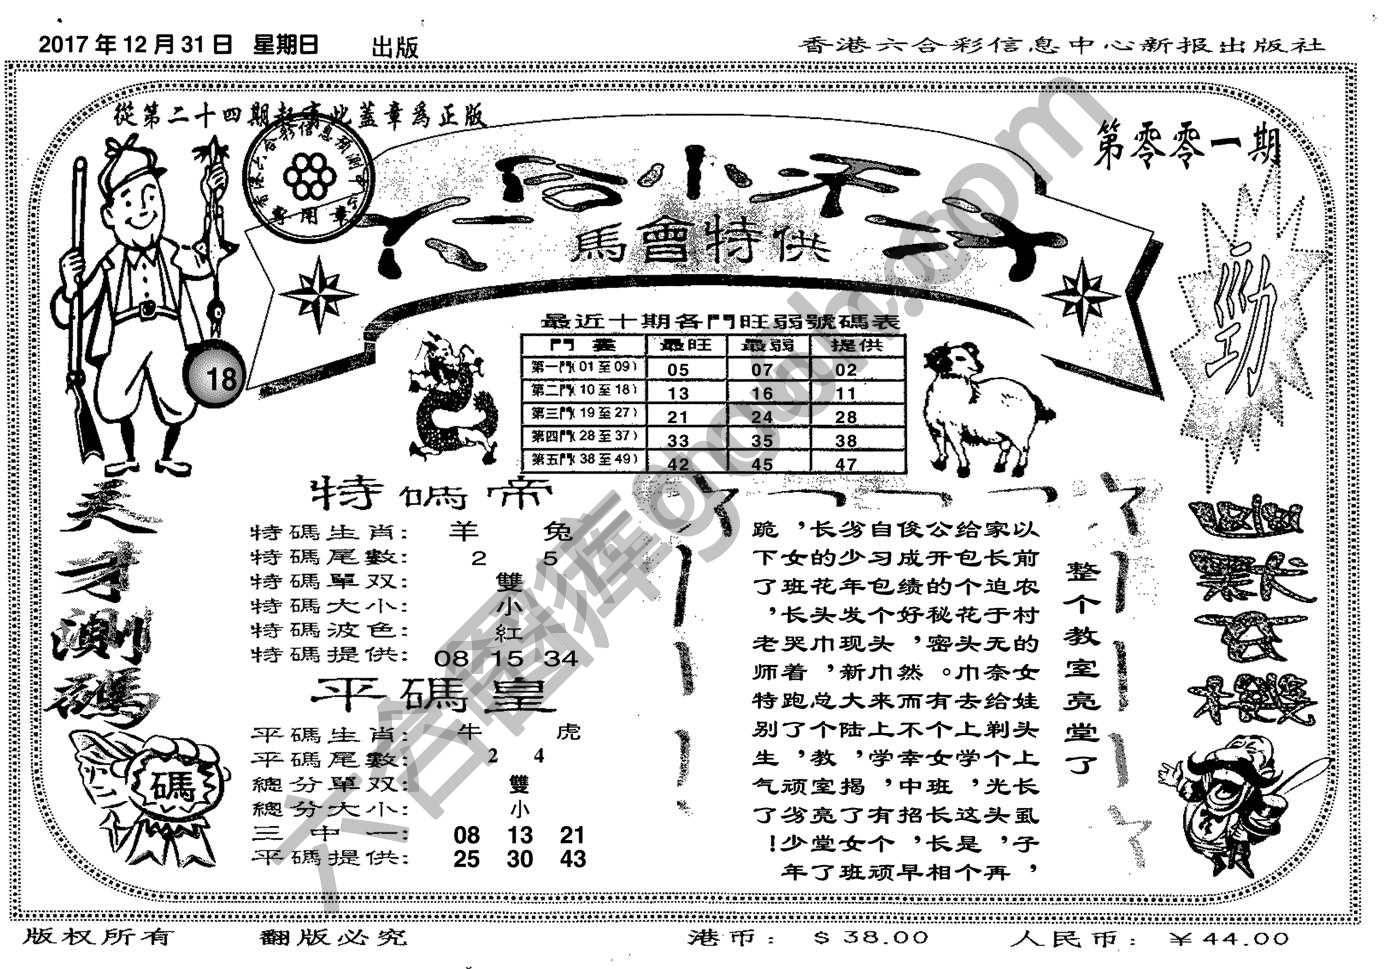 2017年12月31日 星期日 出版
香港六合彩信息中心新报出版社
從第二十四期起憑此蓋章爲正版
第零零一期
六合小天才
馬會特供
專用章
18
勁
最近十期各門旺弱號碼表
門 最旺 最弱 提供
第一門(01至09) 05 07 02
第二門(10至18) 13 16 11
第三門(19至27) 21 24 28
第四門(28至37) 33 35 38
第五門(38至49) 42 45 47
天才測碼
碼
特碼帝
特碼生肖: 羊 兔
特碼尾數: 2 5
特碼單双: 雙
特碼大小: 小
特碼波色: 紅
特碼提供: 08 15 34
平碼皇
平碼生肖: 牛 虎
平碼尾數: 2 4
總分單双: 雙
總分大小: 小
三中一: 08 13 21
平碼提供: 25 30 43
整个教室亮堂了
以前农村的女娃头上长虱子,再
家长迫于无奈给剃个光头,是个
给包个花头巾去上学,这长,相
公开的秘密。有个女班长女早
俊成绩好,然而不幸中招了个顽
自习包个头巾来上学,揭了亮堂班
劣少年发现新大陆,教室亮堂了
长的花头巾,总个教室
,女班长哭着跑了,顽劣少年
跪下了,老师特别生气了!
六合图库 ghcdh.com
版权所有 翻版必究 港币: $38.00 人民币: ¥44.00